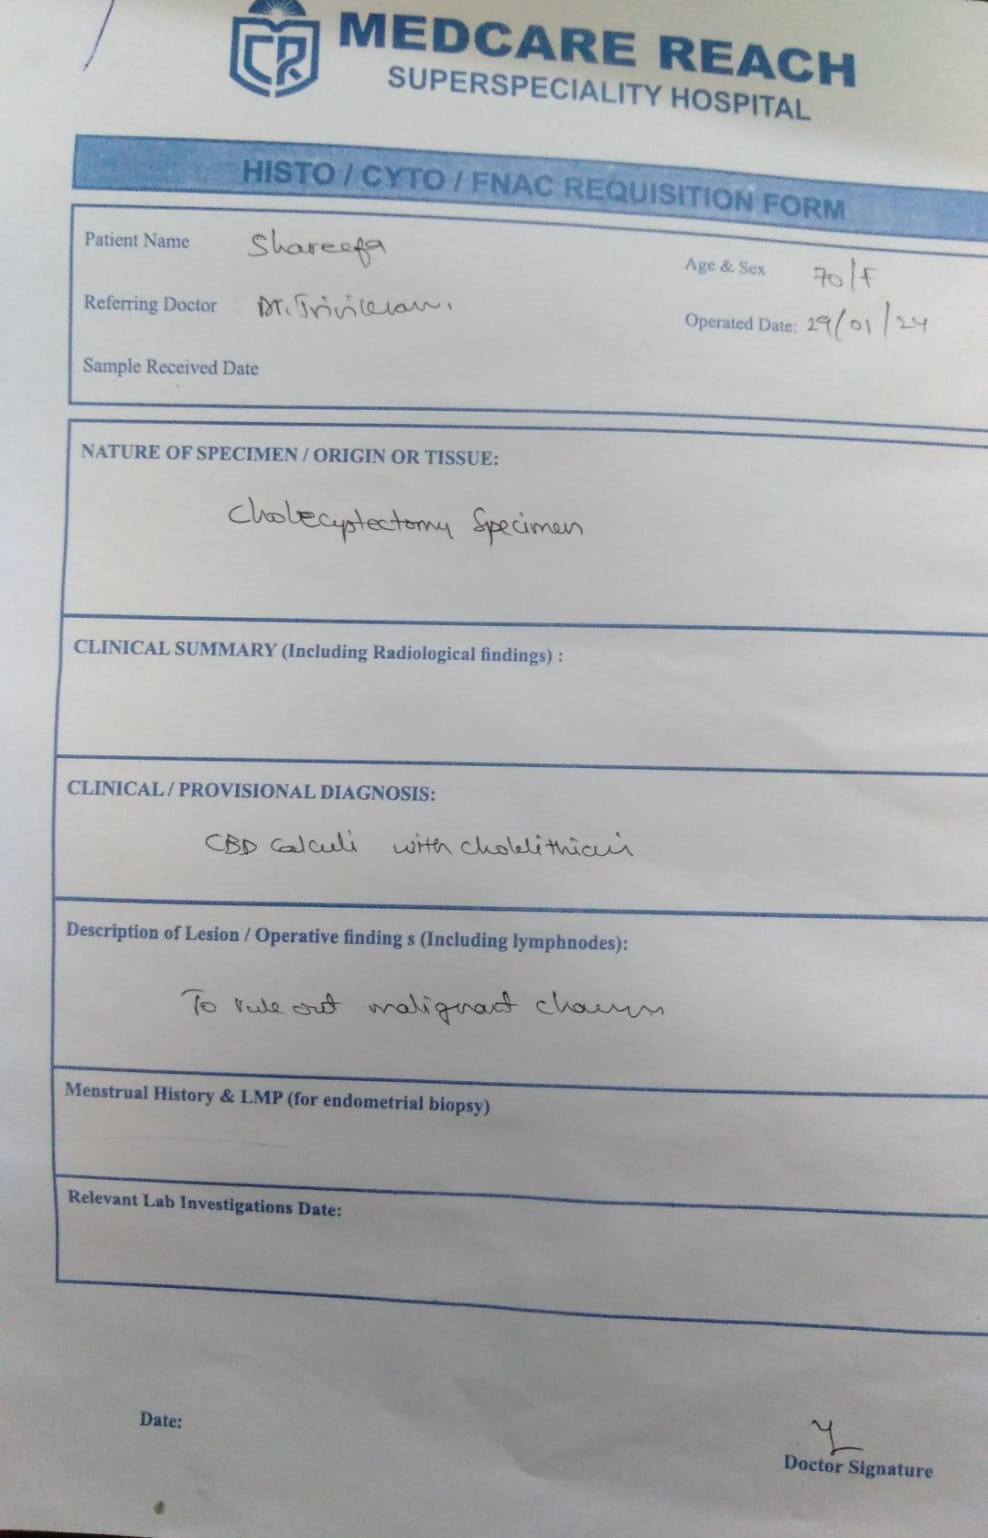 CR
MEDCARE REACH
SUPERSPECIALITY HOSPITAL
HISTO / CYTO / FNAC REQUISITION FORM
Patient Name Shareefa
Age & Sex 70/F
Referring Doctor Dr.
Operated Date: 29/01/24
Sample Received Date
NATURE OF SPECIMEN / ORIGIN OR TISSUE:
Cholecystectomy Specimen
CLINICAL SUMMARY (Including Radiological findings) :
CLINICAL / PROVISIONAL DIAGNOSIS:
CBD Calculi with
Description of Lesion / Operative finding s (Including lymphnodes):
To rule out malignant
Menstrual History & LMP (for endometrial biopsy)
Relevant Lab Investigations Date:
Date:
Doctor Signature